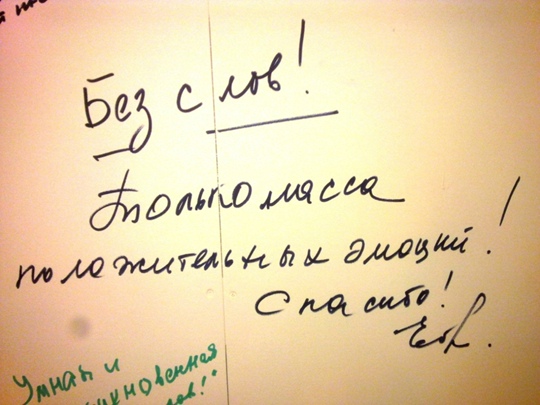 Без слов!
Только масса
положительных эмоций!
Спасибо!
Умная и